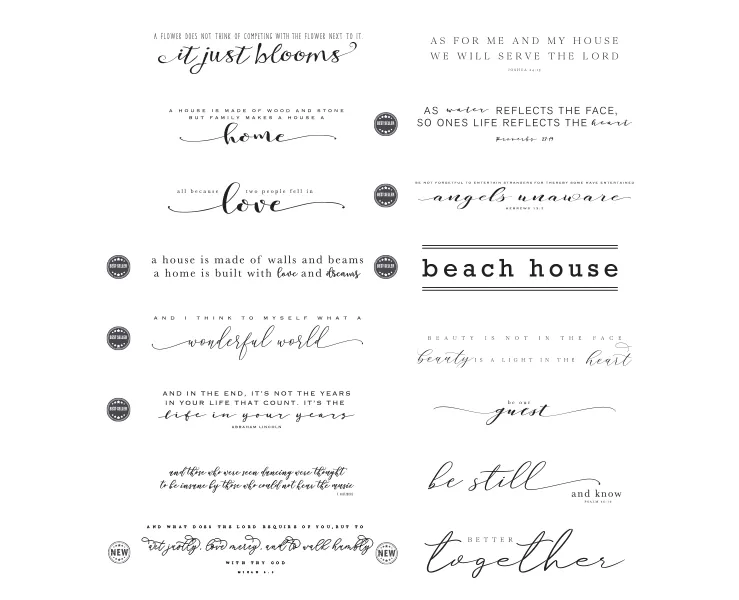 A FLOWER DOES NOT THINK OF COMPETING WITH THE FLOWER NEXT TO IT.
it just blooms
A HOUSE IS MADE OF WOOD AND STONE
BUT FAMILY MAKES A HOUSE A
home
all because two people fell in
love
a house is made of walls and beams
a home is built with love and dreams
BEST SELLER
AND I THINK TO MYSELF WHAT A
wonderful world
BEST SELLER
AND IN THE END, IT'S NOT THE YEARS
IN YOUR LIFE THAT COUNT. IT'S THE
life in your years
ABRAHAM LINCOLN
BEST SELLER
and those who were seen dancing were thought
to be insane by those who could not hear the music
AND WHAT DOES THE LORD REQUIRE OF YOU, BUT TO
act justly, love mercy, and to walk humbly
WITH THY GOD
MICAH 6:8
NEW
AS FOR ME AND MY HOUSE
WE WILL SERVE THE LORD
JOSHUA 24:15
AS water REFLECTS THE FACE,
SO ONES LIFE REFLECTS THE heart
Proverbs 27:19
BEST SELLER
BE NOT FORGETFUL TO ENTERTAIN STRANGERS FOR THEREBY SOME HAVE ENTERTAINED
angels unaware
HEBREWS 13:2
BEST SELLER
beach house
BEST SELLER
BEAUTY IS NOT IN THE FACE
beauty IS A LIGHT IN THE heart
be our
guest
be still
and know
PSALM 46:10
BETTER
together
NEW